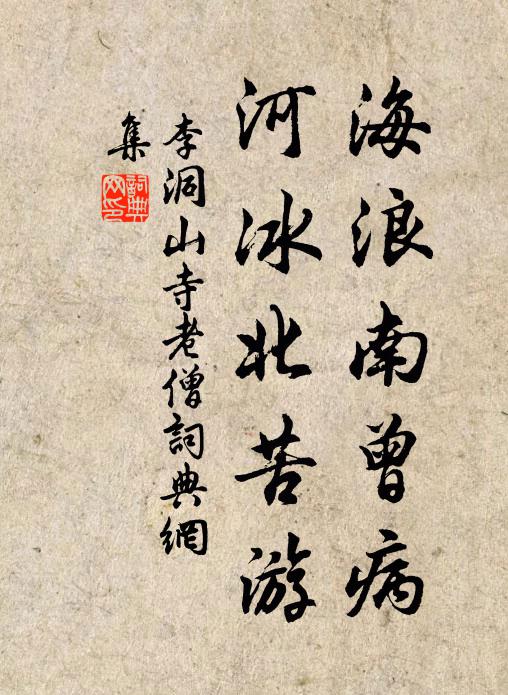 海浪南曾病
河冰北苦游
李洞山寺老僧詞典網
集
詞典網印